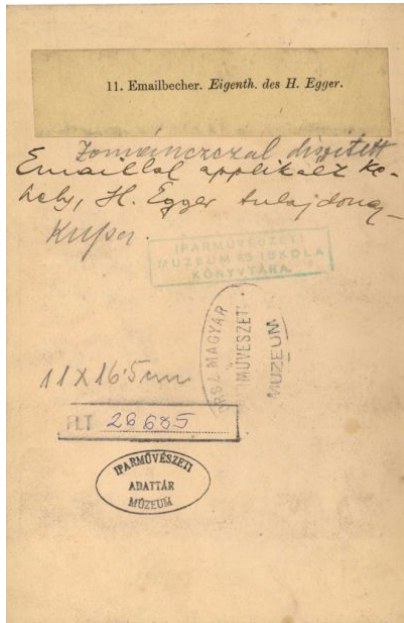 11. Emailbecher. Eigenth. des H. Egger.
Zománczczal díszített
Emaillal applikált ke-
hely, H. Egger tulajdona,
Kupa.
IPARMŰVÉSZETI
MUZEUM ÉS ISKOLA
KÖNYVTÁRA.
ORSZ. MAGYAR
IPARMŰVESZETI
MUZEUM
11 X 16.5 cm
FLT 26685
IPARMŰVÉSZETI
ADATTÁR
MÚZEUM